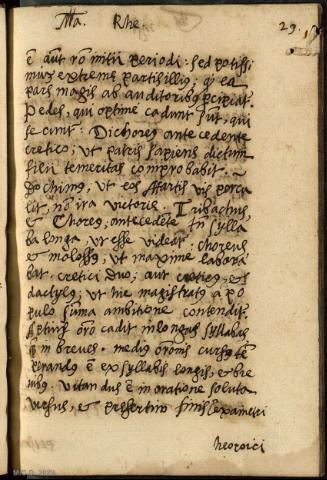 Rhe.
29.
ē aut rō initij periodi: sed potissi
mus extreme partis illius; qꝫ ea
pars magis ab auditoribus pcipiat.
Pedes, qui optime cadunt sut, qui
se cunt: Dichoreus antecedente
cretico; ut patris sapiens dictum
filii temeritas comprobabit.
Dochimus, ut eos Martis vis percu
lit, nō ira victorie. Tribachus,
et Choreus, antecedēte tn̄ sylla
ba longa, ut esse videat: choreus
et molossus, ut maxime labora
bat. cretici duo; aut creticus, et
dactylus; ut hic magistratus a po
pulo suma ambitione contendit.
Aptius orō cadit in longas syllabas
qm̄ in breves. medius oronis cursus tē
perandus ē ex syllabis longis, et bre
uibus. Vitandus ē in oratione soluta
uersus, et presertim finis exametri
heroici